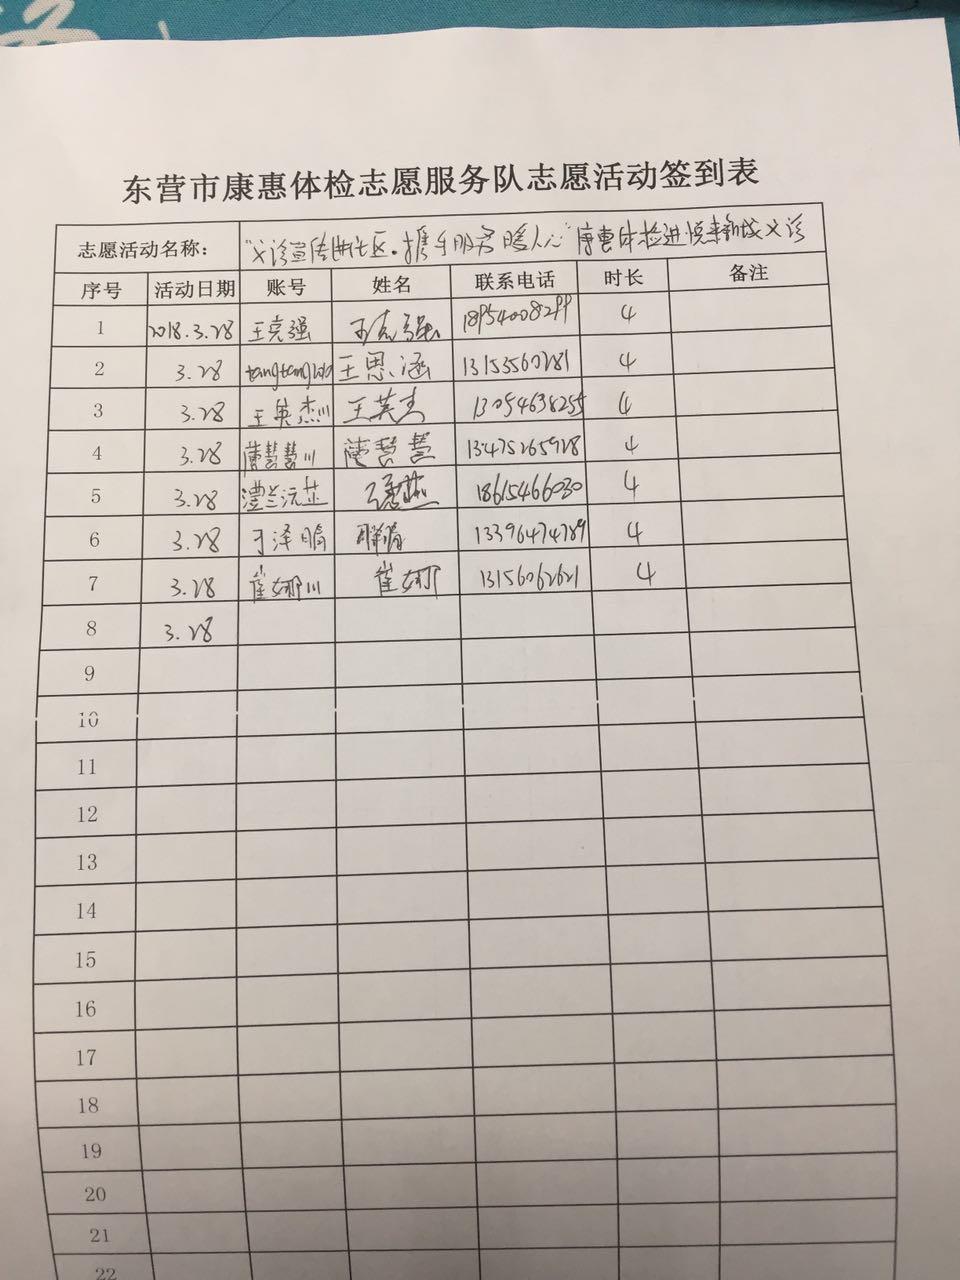 东营市康惠体检志愿服务队志愿活动签到表
志愿活动名称： "义诊宣传进社区。携手服务暖人心"康惠体检进悦来新城义诊
序号 活动日期 账号 姓名 联系电话 时长 备注
1 2018.3.28 王克强 王克强 18954008299 4
2 3.28 王思涵 13153560281 4
3 3.28 王英杰川 王英杰 13054638255 4
4 3.28 薄慧慧川 薄慧慧 13475265928 4
5 3.28 澧兰沅芷 18615466030 4
6 3.28 于泽鹏 13396474789 4
7 3.28 崔娜川 崔娜 13156062621 4
8 3.28
9
10
11
12
13
14
15
16
17
18
19
20
21
22